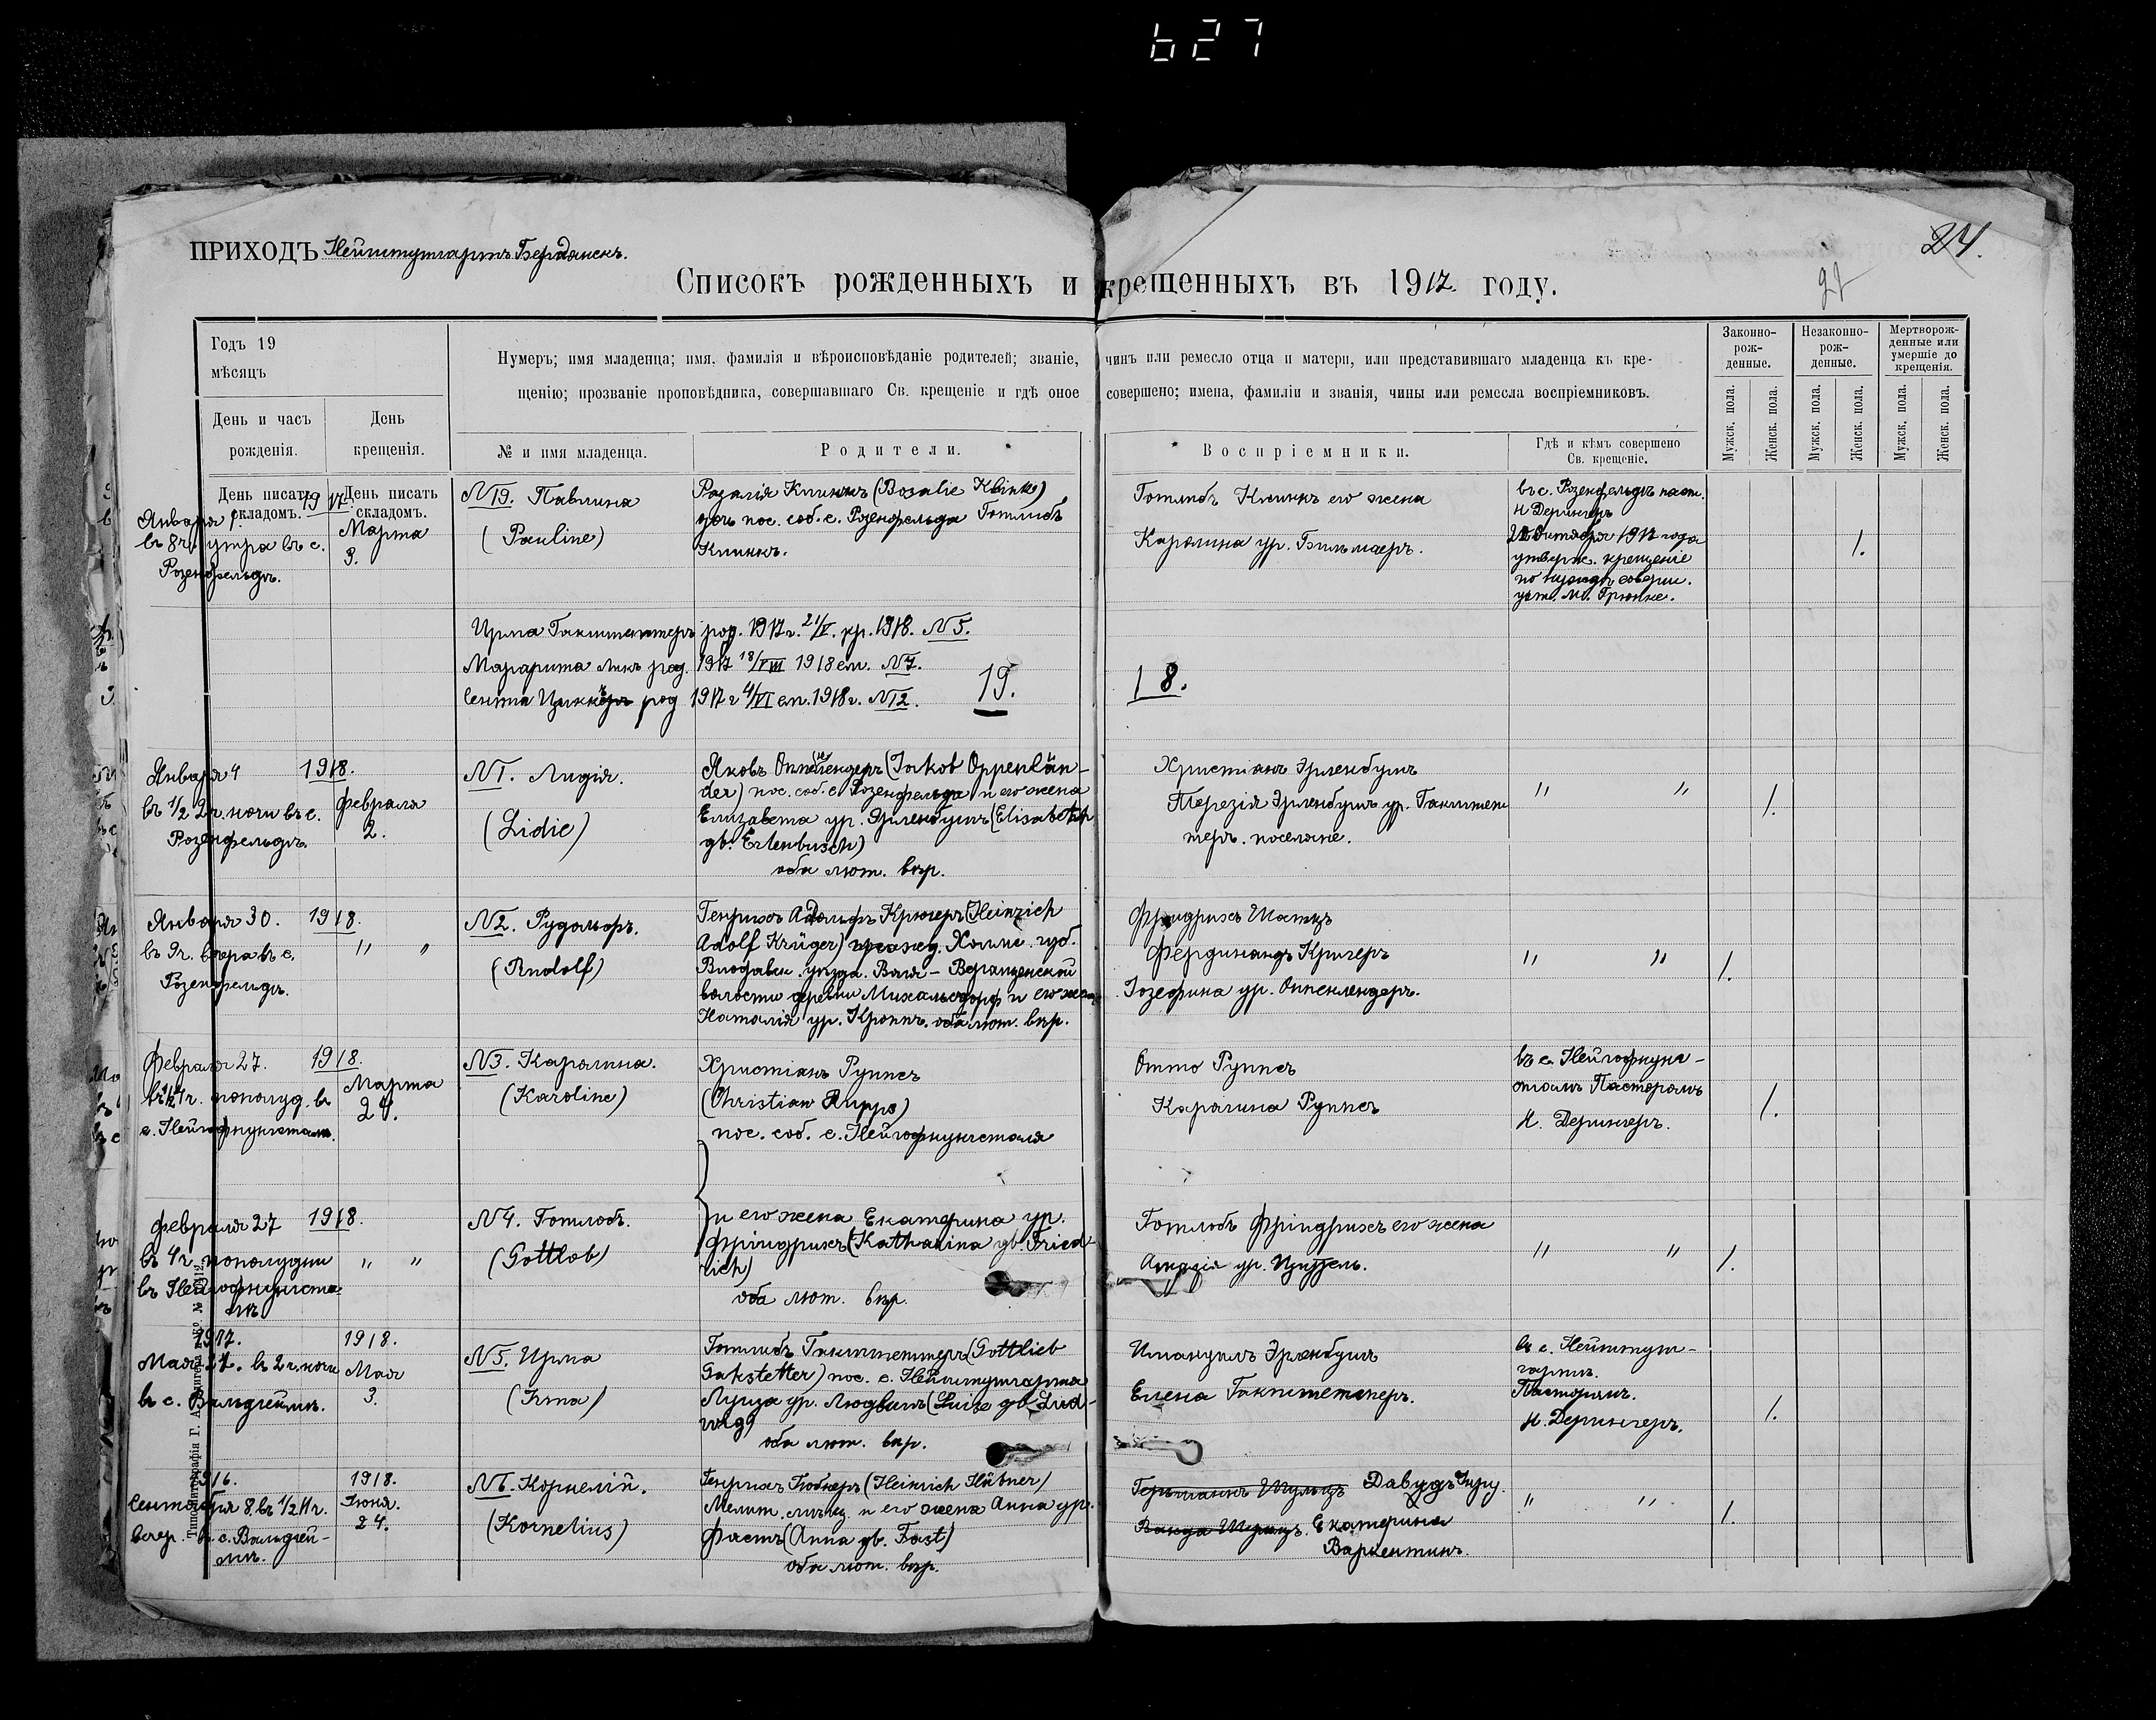 627
ПРИХОДЪ Нейштутгартъ Бердянскъ.
24.
Списокъ рожденныхъ и крещенныхъ въ 1917 году.
Годъ 19
мѣсяцъ
День и часъ
рожденія.
День
крещенія.
Нумеръ; имя младенца; имя, фамилія и вѣроисповѣданіе родителей; званіе, чинъ или ремесло отца и матери, или представившаго младенца къ кре-
щенію; прозваніе проповѣдника, совершавшаго Св. крещеніе и гдѣ оное совершено; имена, фамиліи и званія, чины или ремесла воспріемниковъ.
№ и имя младенца.
Родители.
Воспріемники.
Гдѣ и кѣмъ совершено
Св. крещеніе.
Законно-
рож-
денные.
Незаконно-
рож-
денные.
Мертворож-
денные или
умершіе до
крещенія.
Мужск. пола.
Женск. пола.
Мужск. пола.
Женск. пола.
Мужск. пола.
Женск. пола.
День писать
складомъ.
День писать
складомъ.
1917.
Января 1.
въ 8 ч. утра въ с.
Розенфельдъ.
Марта
3.
N19. Павлина
(Pauline)
Розалія Клинкъ (Rosalie Klink)
дочь пос. соб. с. Розенфельда Готлибъ
Клинкъ.
Готлибъ Клинкъ его жена
Каролина ур.
въ с. Розенфельдъ паст.
Н. Дерингеръ
Октября 1917 года
утверж. крещеніе
по нуждѣ соверш.
1.
Ирма Гакштеттеръ род. 1917 г. 21/V. кр. 1918. N5.
Маргарита Ликъ род. 1917 18/VIII 1918 см. N7.
Сента род 1917 г 4/VI см. 1918 г. N12.
19.
18.
Января 4 1918.
въ 1/2 2 ч. ночи въ с.
Розенфельдъ.
Февраля
2.
N1. Лидія.
(Lidie)
Яковъ Оппенлендеръ (Jakob Oppenlän-
der) пос. соб. с. Розенфельда и его жена
Елизавета ур. Эрленбушъ (Elisabeth
gb. Erlenbusch)
оба лют. вѣр.
Христіанъ Эрленбушъ
Терезія Эрленбушъ ур. Гакштет
теръ. поселяне.
" "
1.
Января 30. 1918.
въ 9 ч. вечера въ с.
Розенфельдъ.
" "
N2. Рудольфъ.
(Rudolf)
Генрихъ Адольфъ Крюгеръ (Heinrich
Adolf Krüger) гражд. Холмс. губ.
Влодавск. уѣзда. Воля - Верещенской
волости деревни Михельсдорфъ и его жена
Наталія ур. Кроппъ. оба лют. вѣр.
Фридрихъ Шатцъ
Фердинандъ Кригеръ
Іозефина ур. Оппенлендеръ.
" "
1.
Февраля 27. 1918.
ч. пополуд. въ
с. Нейгофнунгсталь.
Марта
24.
N3. Каролина.
(Karoline)
Христіанъ Руппсъ
(Christian Rupps)
пос. соб. с. Нейгофнунгсталя
Отто Руппсъ
Каролина Руппсъ
въ с. Нейгофнунг-
сталь Пасторомъ
Н. Дерингеръ.
1.
Февраля 27 1918.
въ 4 ч. пополудни
въ Нейгофнунгста-
лѣ
" "
N4. Готлобъ.
(Gottlob)
и его жена Екатерина ур.
Фридрихъ (Katharina gb. Fried-
rich)
оба лют. вѣр.
Готлобъ Фридрихъ его жена
Амалія ур. Цитцель.
" "
1.
1917.
Мая 21. въ 2 ч. ночи
въ с. Вальдгеймъ.
1918.
Мая
3.
N5. Ирма
(Irma)
Готлибъ Гакштеттеръ (Gottlieb
Gakstetter) пос. с. Нейштутгарта
Луиза ур. Людвигъ (Luise gb. Lud-
wig)
оба лют. вѣр.
Имануилъ Эрленбушъ
Елена Гакштеттеръ.
въ с. Нейштут-
гартъ.
Пасторомъ.
Н. Дерингеръ.
1.
1916.
Сентября 8. въ 1/2 11 ч.
вечер. въ с. Вальдгей-
мъ.
1918.
Іюня.
24.
N6. Корнелій.
(Kornelius)
Генрихъ Гюбнеръ (Heinrich Hübner)
Мелит. мѣщ. и его жена Анна ур.
Фастъ (Anna gb. Fast)
оба лют. вѣр.
Германнъ Шульцъ Давидъ
Ванда Шульцъ. Екатерина
Варкентинъ.
" "
1.